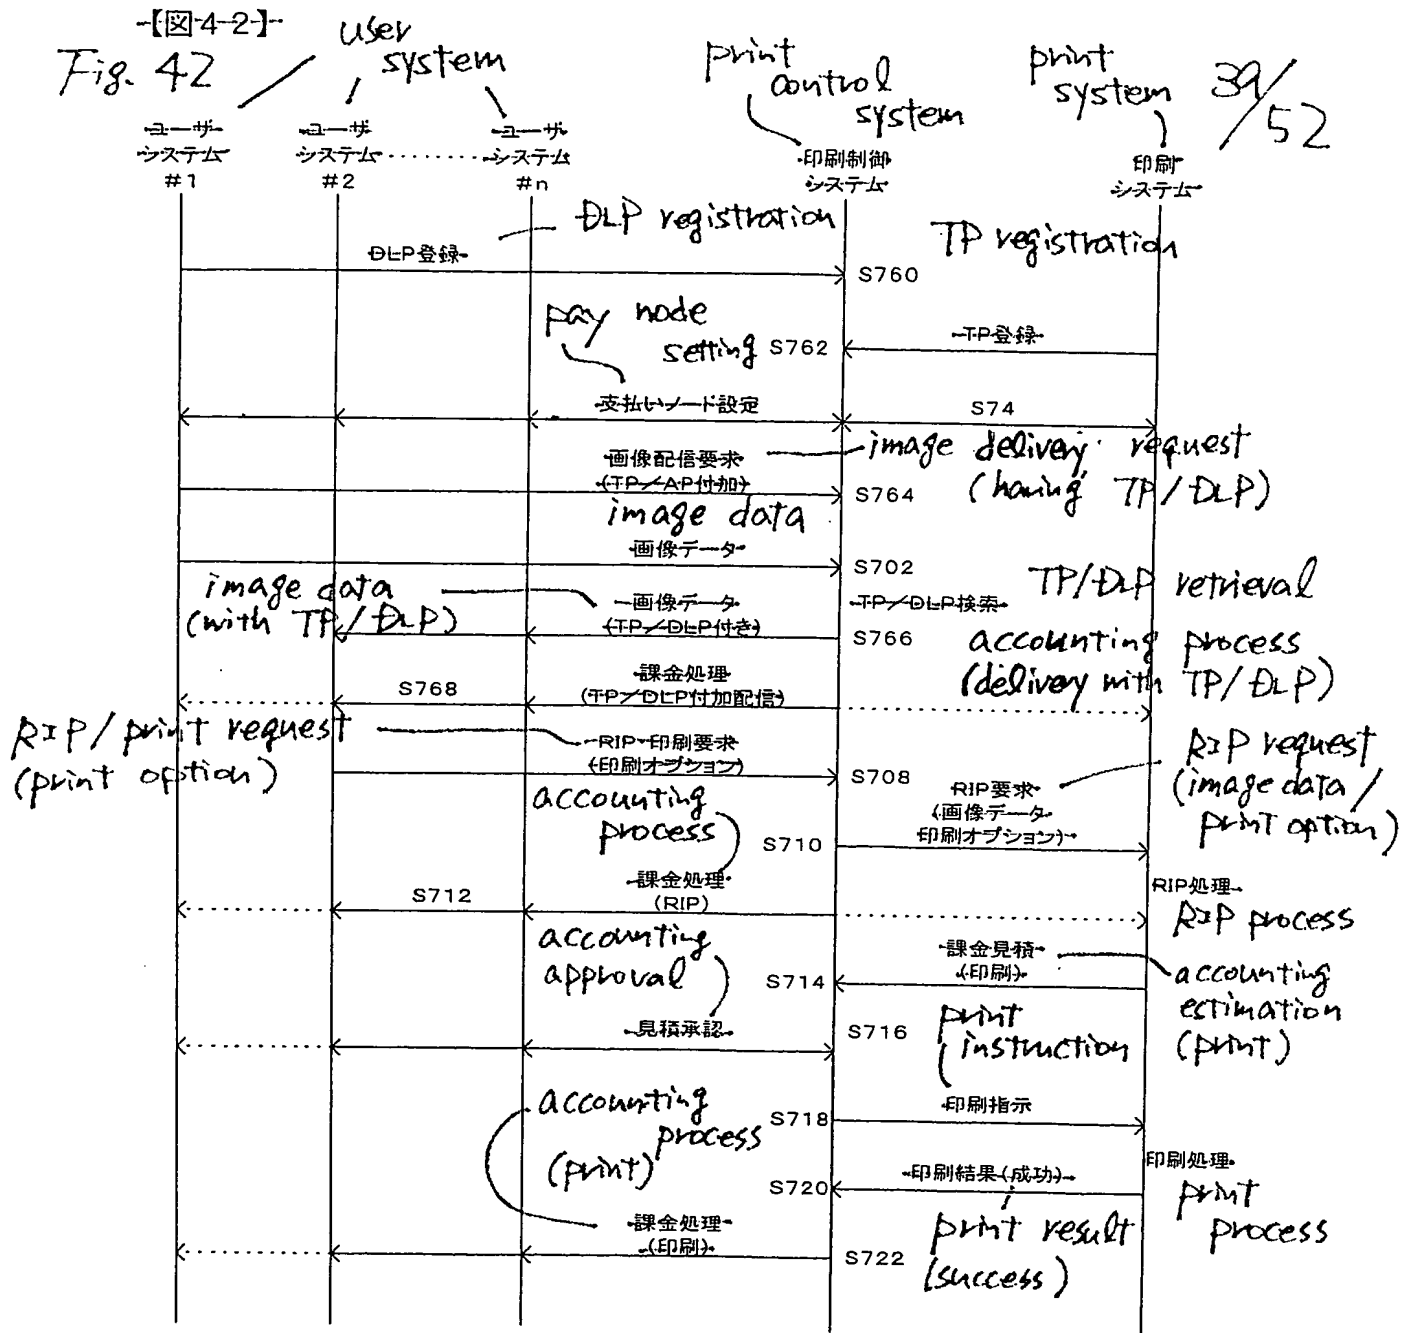 【図42】
Fig. 42
user
system
print
control
system
print
system
39/52
ユーザ
システム
#1
ユーザ
システム
#2
........
ユーザ
システム
#n
印刷制御
システム
印刷
システム
DLP registration
DLP登録
S760
TP registration
pay node
setting
S762
TP登録
支払いノード設定
S74
画像配信要求
(TP/AP付加)
S764
image delivery request
(having TP/DLP)
image data
画像データ
S702
image data
(with TP/DLP)
画像データ
(TP/DLP付き)
TP/DLP検索
S766
TP/DLP retrieval
accounting process
(delivery with TP/DLP)
S768
課金処理
(TP/DLP付加配信)
RIP/print request
(print option)
RIP・印刷要求
(印刷オプション)
S708
RIP request
(image data/
print option)
accounting
process
S710
RIP要求
(画像データ
印刷オプション)
S712
課金処理
(RIP)
RIP処理
RIP process
accounting
approval
S714
課金見積
(印刷)
accounting
estimation
(print)
見積承認
S716
print
instruction
accounting
process
(print)
S718
印刷指示
印刷処理
print
process
S720
印刷結果(成功)
print result
(success)
課金処理
(印刷)
S722